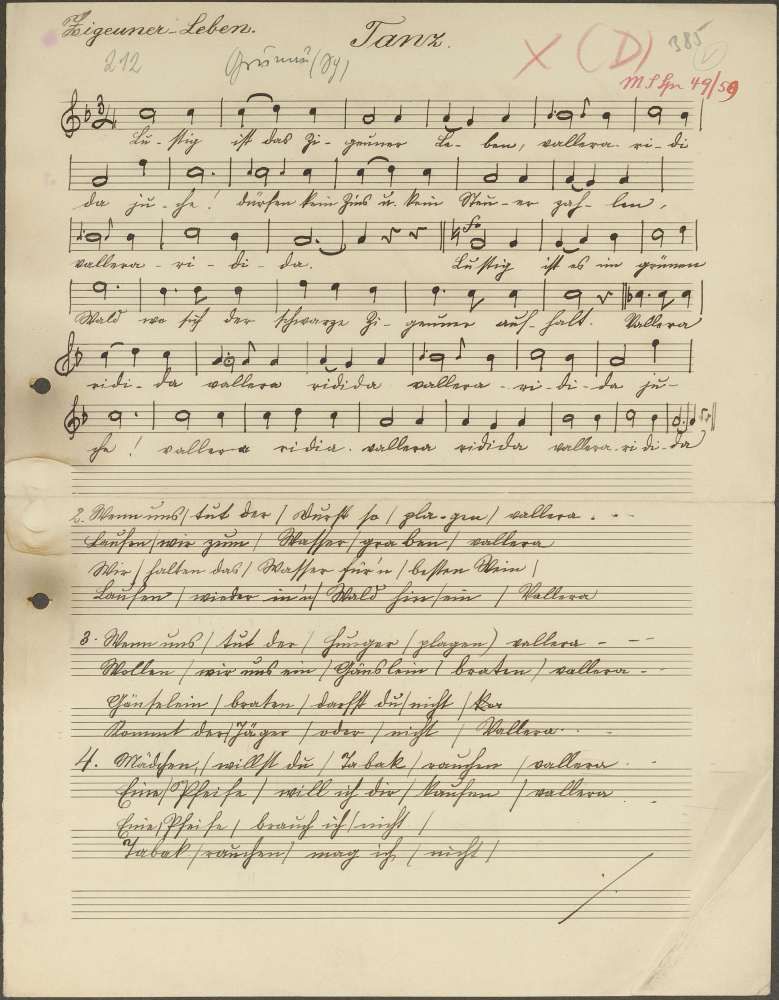 Zigeuner-Leben. Tanz.
212 X (D) 385
Lu-stig ist das Zi-geuner Le-ben, vallera-ri-di
da ju-che! dürfen kein Zins u. kein Steu-er zah-len,
vallera-ri-di-da. Lustig ist es im grünen
Wald wo sich der schwarze Zi-geuner auf-halt. Vallera
ridi-da vallera ridida vallera-ri-di-da ju-
che! vallera ridia. vallera ridida vallera-ri di-da
2. Wenn uns / tut der / Durst so / pla-gen / vallera.
Laufen / wir zum / Wasser / graben / vallera
Wir / halten das / Wasser für'n / besten Wein /
Laufen / wieder in'n / Wald hin / ein / Vallera
3. Wenn uns / tut der / Hunger / plagen / vallera
Wollen / wir uns ein / Gänslein / braten / vallera
Gänselein / braten / darfst du / nicht /
Kommt der / Jäger / oder / nicht / Vallera
4. Mädchen, / willst du / Tabak / rauchen / vallera
Eine / Pfeife / will ich dir / kaufen / vallera
Eine / Pfeife / brauch ich / nicht /
Tabak / rauchen / mag ich / nicht /